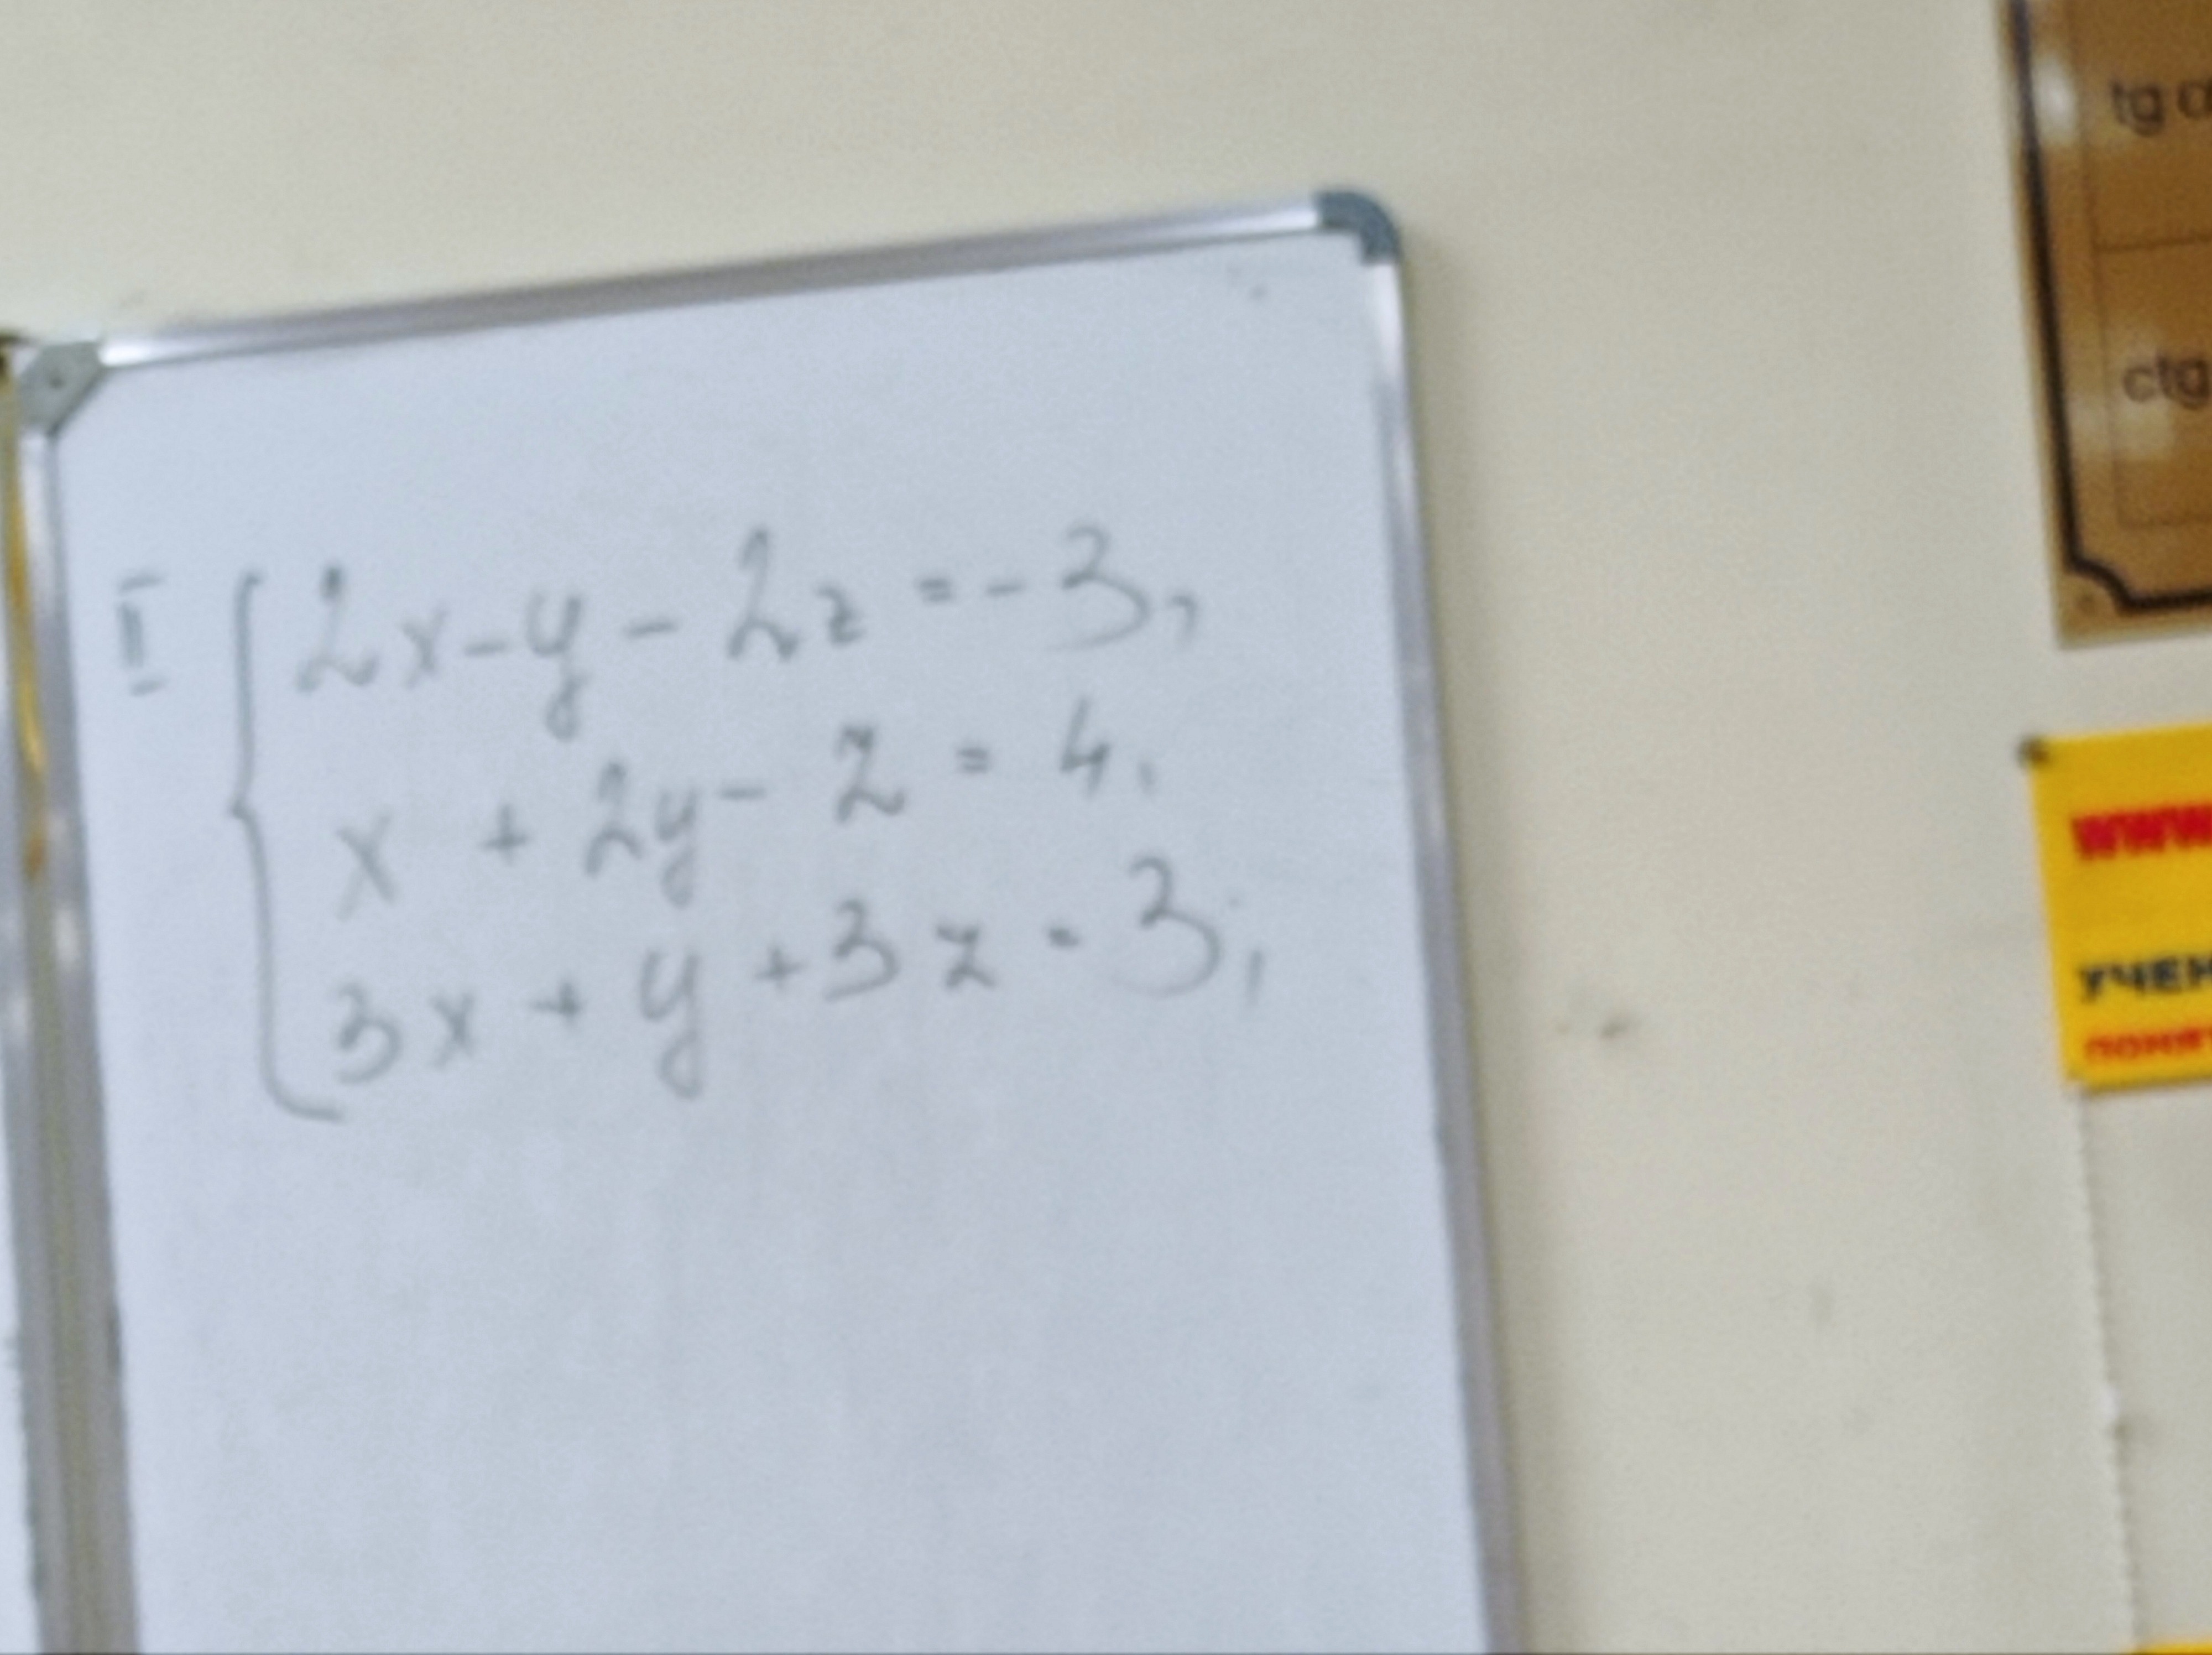 I { 2x - y - 2z = -3,
x + 2y - z = 4,
3x + y + 3z = 3;
tg
ctg
www
УЧЕН
ПОНЯТ